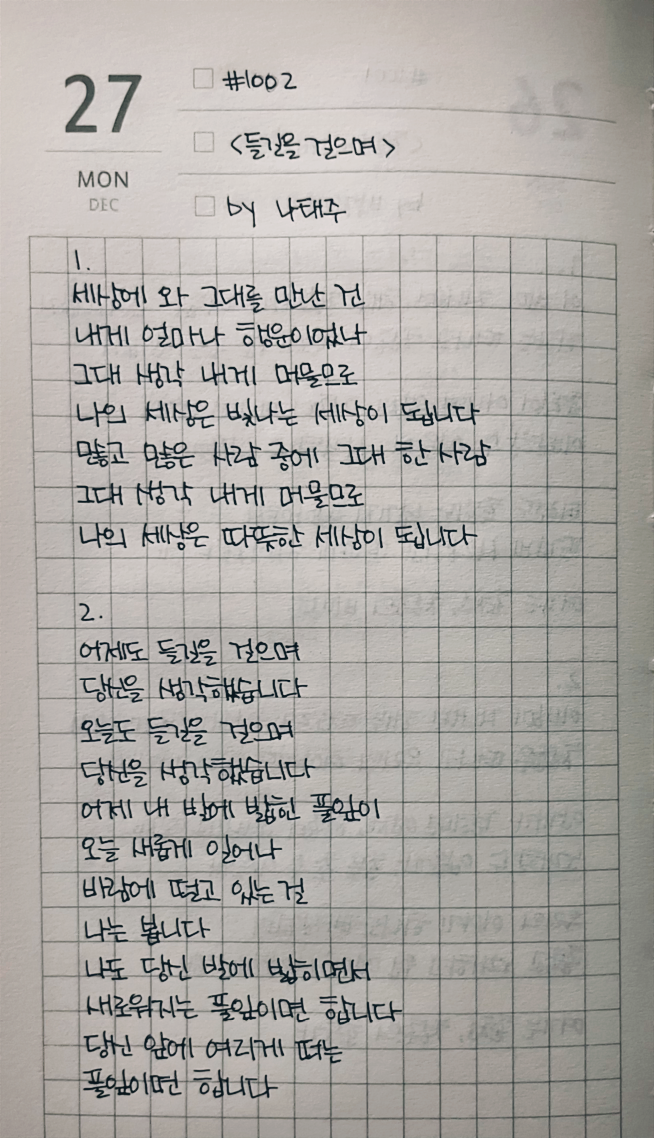 27
MON
DEC
#1002
<들길을 걸으며>
by 나태주
1.
세상에 와 그대를 만난 건
내게 얼마나 행운이었나
그대 생각 내게 머물므로
나의 세상은 빛나는 세상이 됩니다
많고 많은 사람 중에 그대 한 사람
그대 생각 내게 머물므로
나의 세상은 따뜻한 세상이 됩니다
2.
어제도 들길을 걸으며
당신을 생각했습니다
오늘도 들길을 걸으며
당신을 생각했습니다
어제 내 발에 밟힌 풀잎이
오늘 새롭게 일어나
바람에 떨고 있는 걸
나는 봅니다
나도 당신 발에 밟히면서
새로워지는 풀잎이면 합니다
당신 앞에 여리게 떠는
풀잎이면 합니다